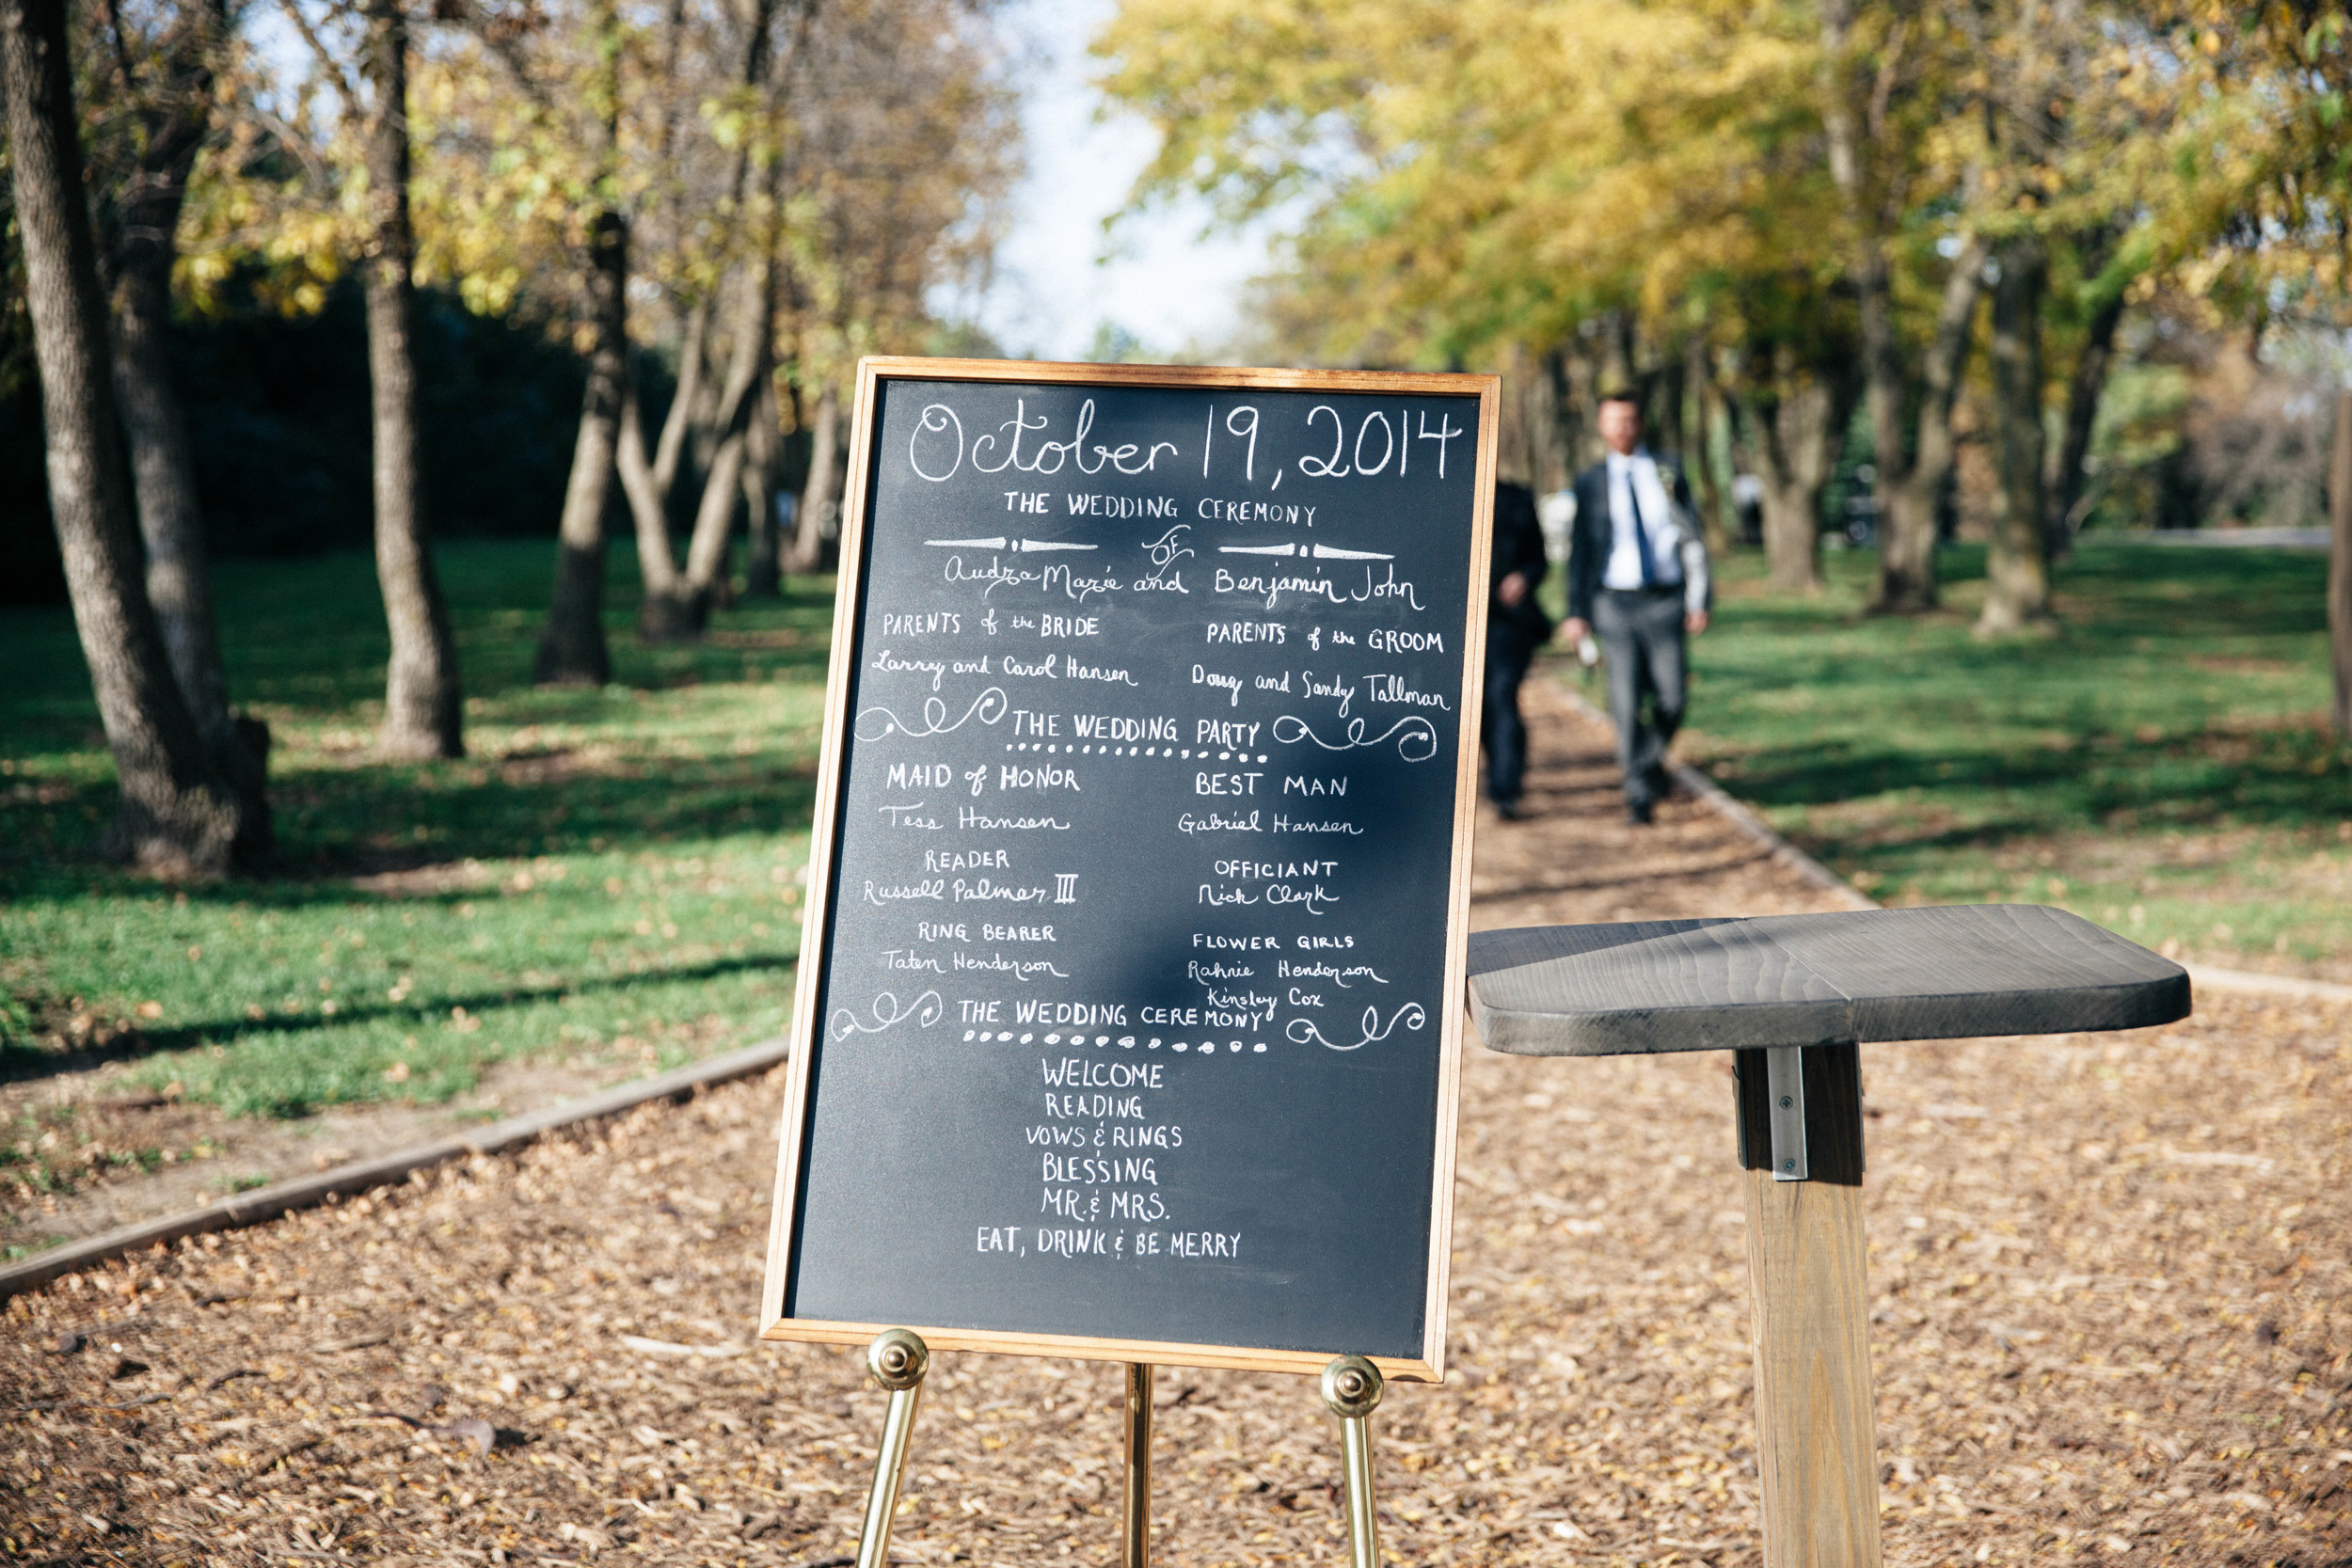 October 19, 2014
THE WEDDING CEREMONY
OF
Audra Marie and Benjamin John
PARENTS of the BRIDE
Larry and Carol Hansen
PARENTS of the GROOM
Doug and Sandy Tallman
THE WEDDING PARTY
MAID of HONOR
Tess Hansen
BEST MAN
Gabriel Hansen
READER
Russell Palmer III
OFFICIANT
Nick Clark
RING BEARER
Taten Henderson
FLOWER GIRLS
Rahnie Henderson
Kinsley Cox
THE WEDDING CEREMONY
WELCOME
READING
VOWS & RINGS
BLESSING
MR. & MRS.
EAT, DRINK & BE MERRY